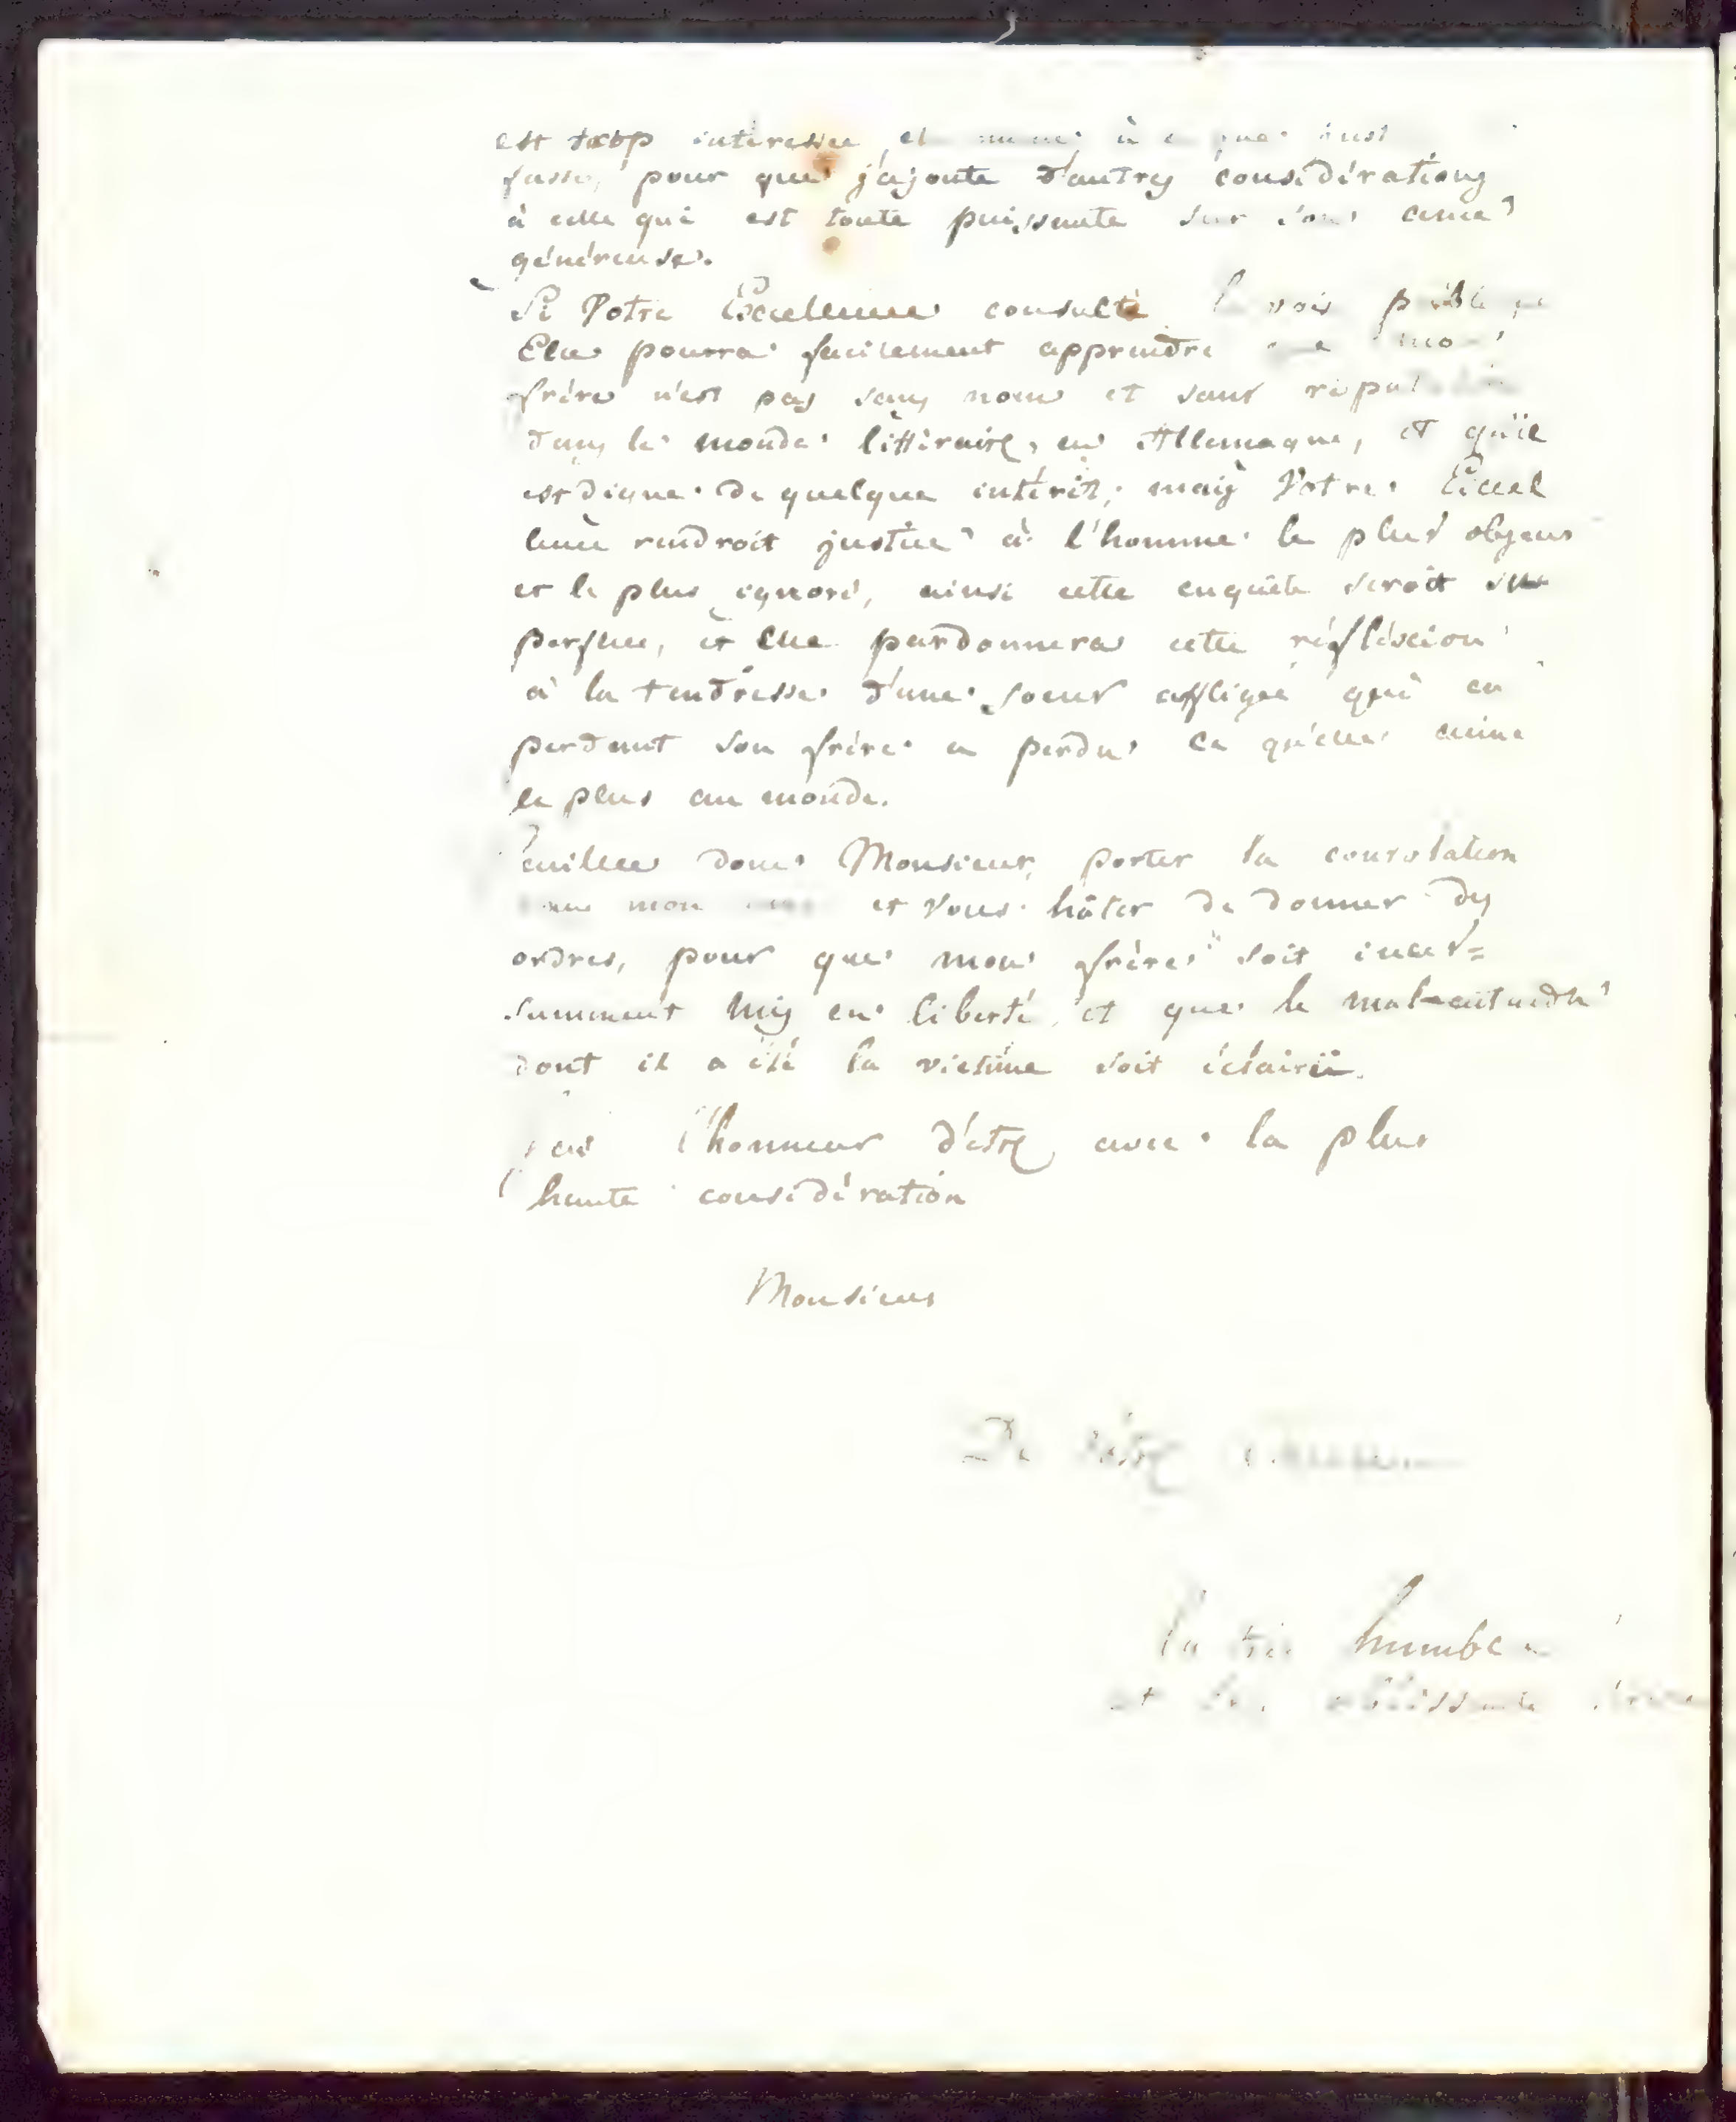 est trop interessée et à que
fasse, pour que j'ajoute d'autres considérations
à celle qui est toute puissante sur son ame
généreuse.
Si Votre Excellence consulte la voix publique
Elle pourra facilement apprendre que mon
frère n'est pas sans nom et sans reputation
dans le monde littéraire, en Allemagne, et qu'il
est digne de quelque intérêt; mais Votre Excel
lence rendroit justice à l'homme le plus obscur
et le plus ignoré, ainsi cette enquête seroit su
perflue, et Elle pardonnera cette réflexion
à la tendresse d'une soeur affligée qui en
perdant son frère a perdu ce qu'elle aime
le plus au monde.
Veuillez donc Monsieur, porter la consolation
dans mon et vous hâter de donner des
ordres, pour que mon frère soit inces=
samment mis en liberté et que le mal-entendu
dont il a été la victime soit éclairci.
J'ai l'honneur d'etre avec la plus
haute considération
Monsieur
De Votre Excellence
la très humble
et très obéissante